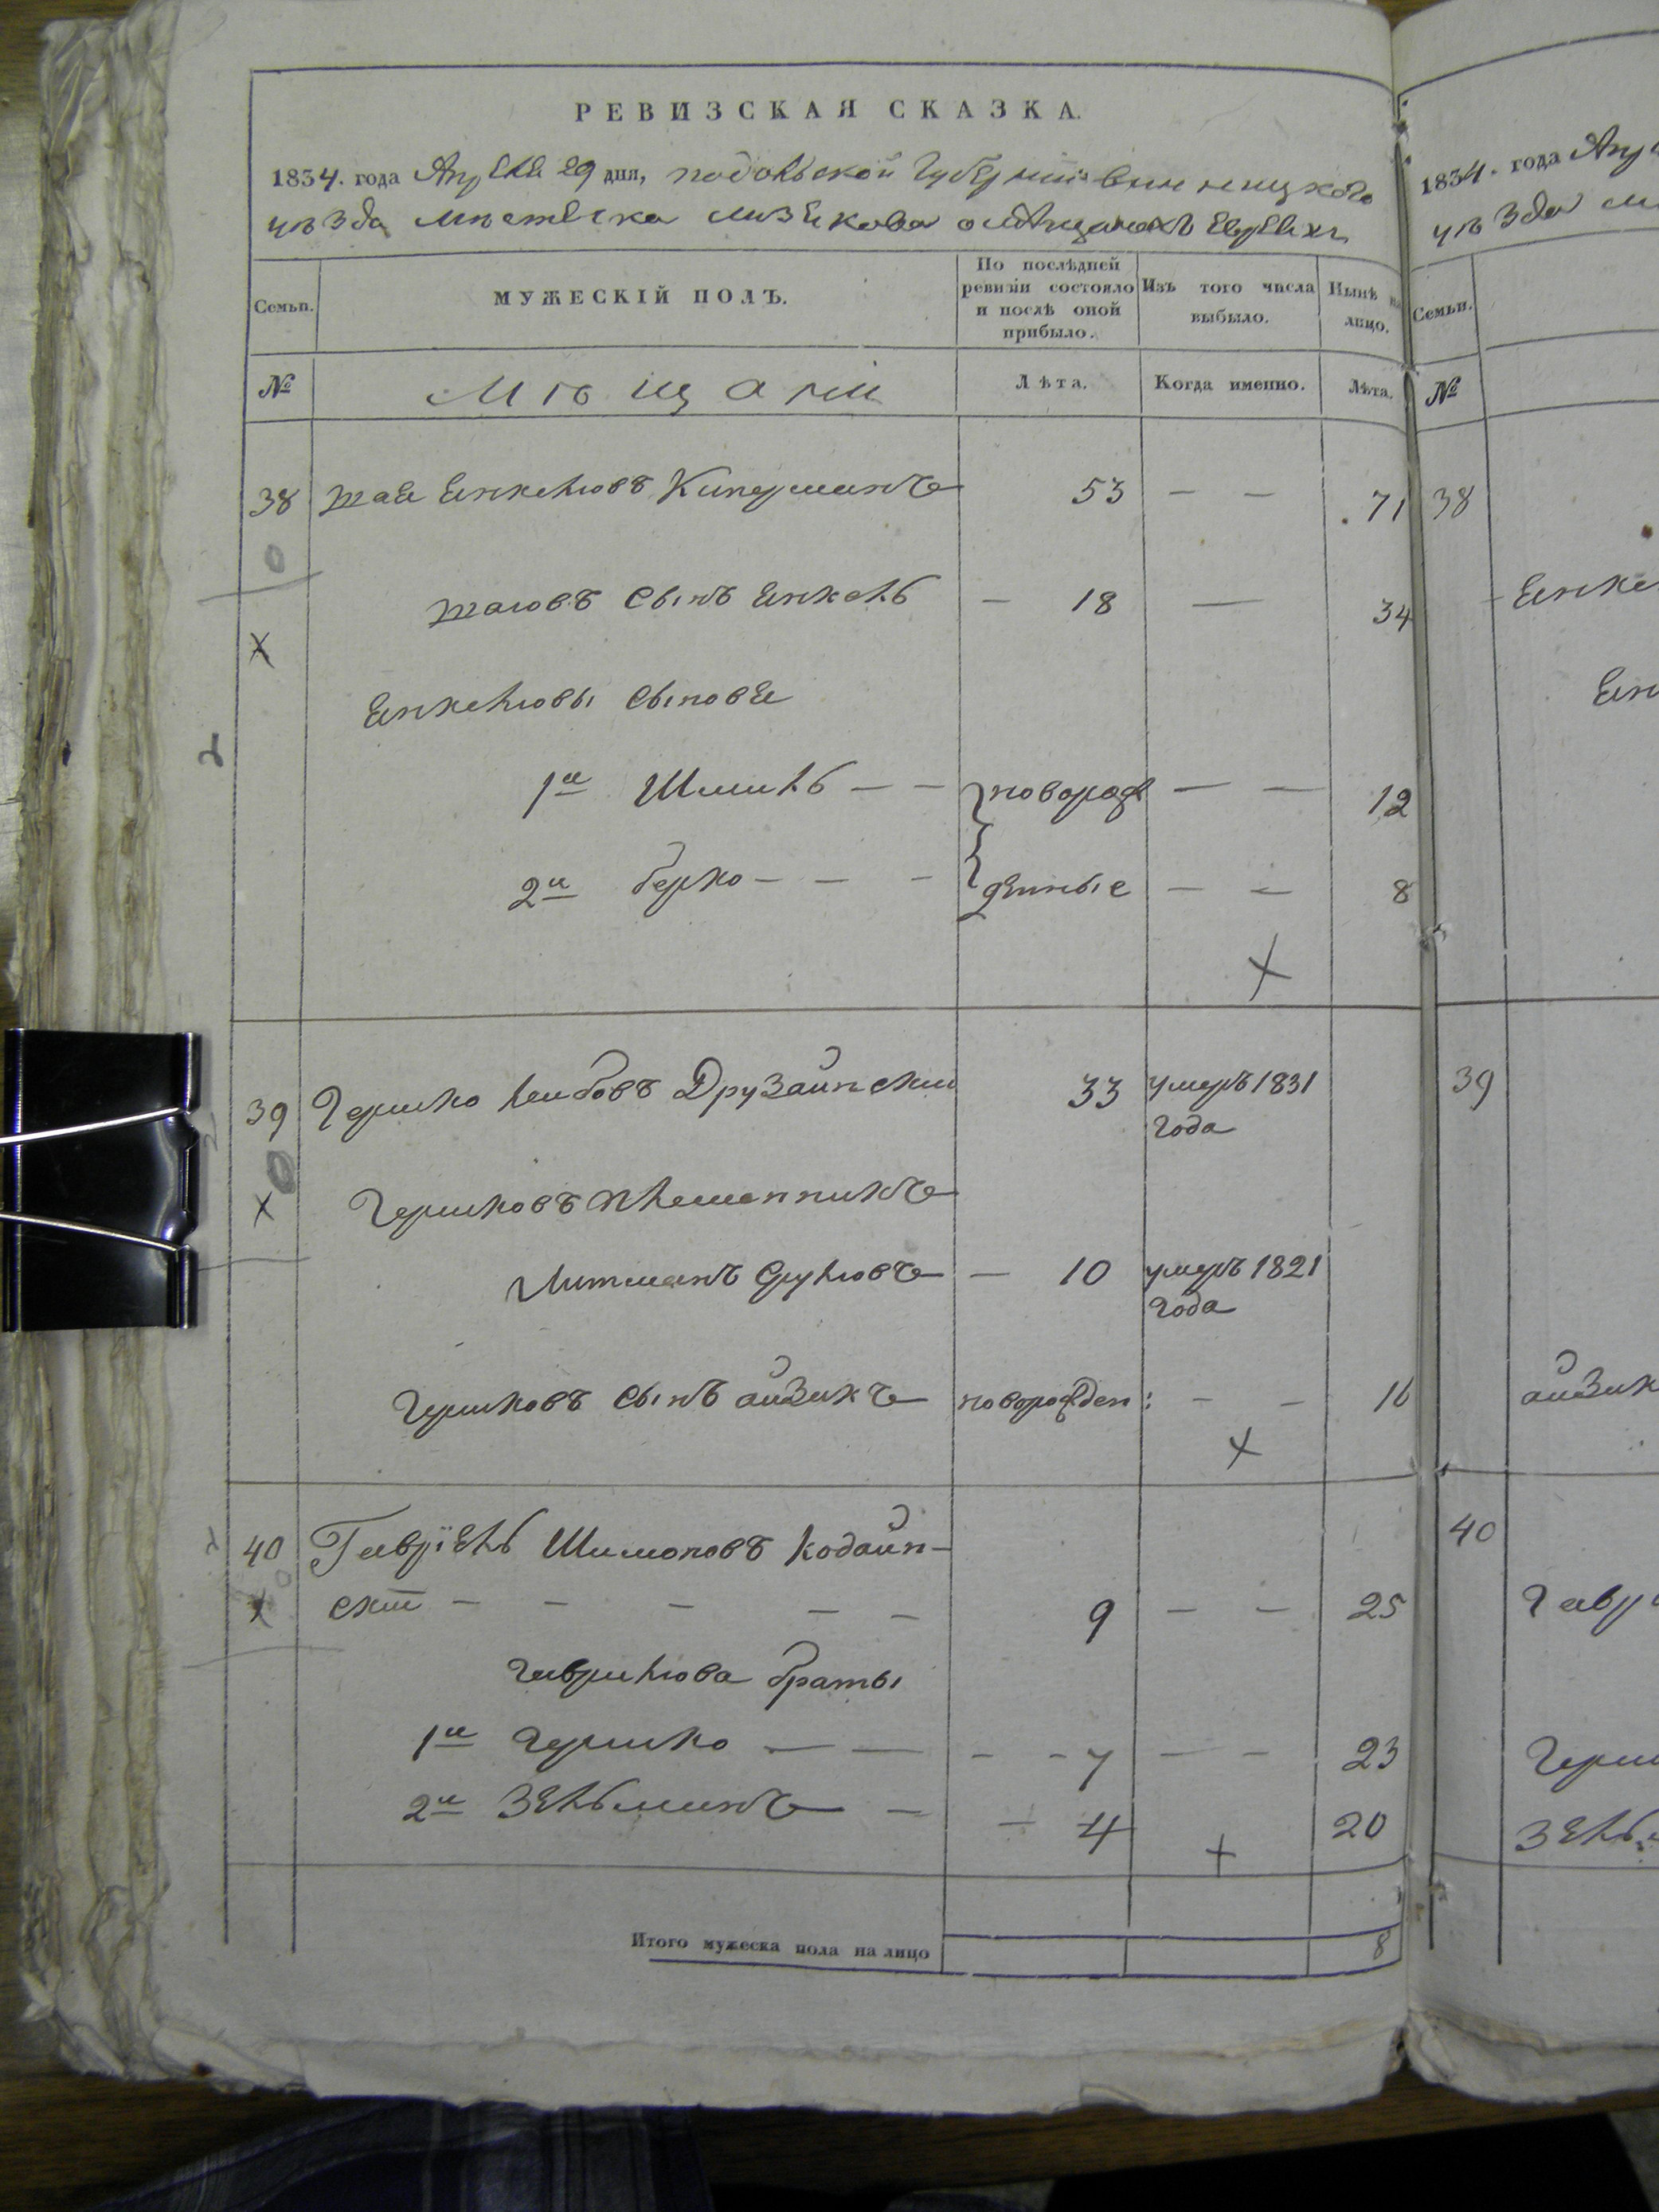 РЕВИЗСКАЯ СКАЗКА.
1834. года Апреля 29 дня, подольской Губернии винницкого
уѣзда мѣстечка Мизекова о мѣщанахъ евреяхъ
Семьи.
МУЖЕСКІЙ ПОЛЪ.
По послѣдней ревизіи состояло и послѣ оной прибыло.
Изъ того числа выбыло.
Нынѣ на лицо.
№
Мѣщани
Лѣта.
Когда именно.
Лѣта.
38 Янкелювъ Киперманъ 53 — — 71
сынъ Янкель — 18 — 34
Янкелювы сыновя
1й Шмиль — — новорож — — 12
2й берко — — — денные — — 8
39 Гершко Лейбовъ Друзайнски 33 умеръ 1831 года
Гершковъ племенникъ
Литманъ Срулювъ — 10 умеръ 1821 года
Гершковъ сынъ айзикъ новорожден: — — 16
40 Гавріель Шимоновъ кодайн-
скій — — — — — 9 — — 25
гаврилюва браты
1й гершко — — — — 7 — — 23
2й Зельманъ — — 4 20
Итого мужеска пола на лицо 8
1834. года
Семьи.
№
38
39
40